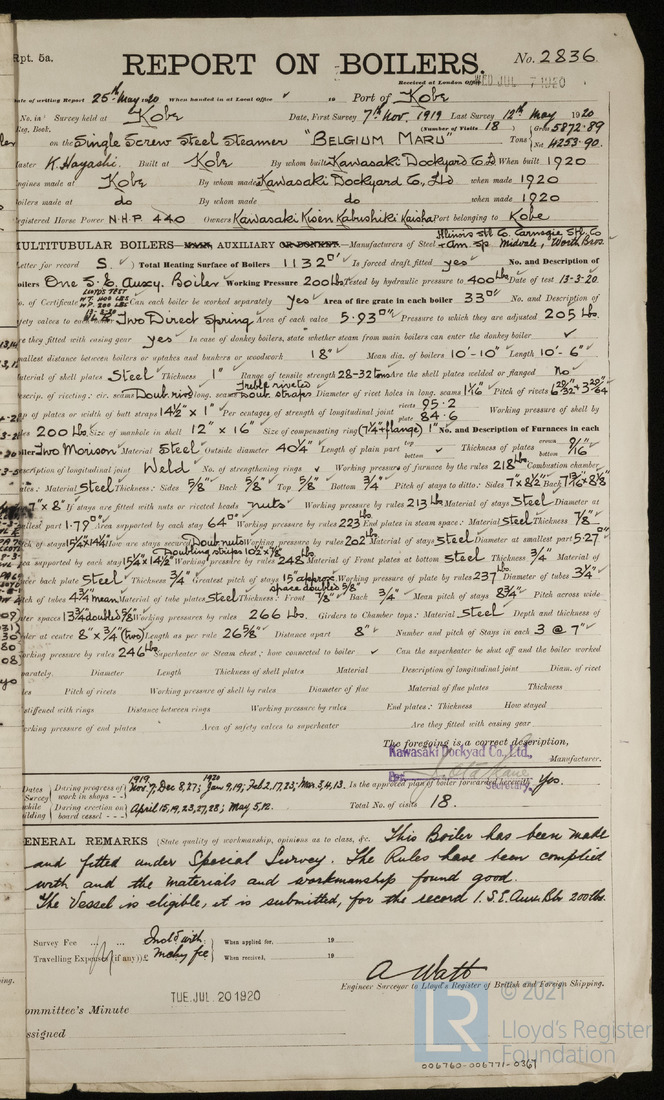 Rpt. 5a.
REPORT ON BOILERS.
No. 2836
Received at London Office WED. JUL 7 1920
Date of writing Report 25th May 1920 When handed in at Local Office 19 Port of Kobe
No. in Survey held at Kobe Date, First Survey 7th Nov. 1919 Last Survey 12th May 1920
Reg. Book. (Number of Visits 18)
on the Single Screw Steel Steamer "BELGIUM MARU" Tons Gross 5872.89 Net 4253.90.
Master K. Hayashi. Built at Kobe By whom built Kawasaki Dockyard Co. Ld When built 1920
Engines made at Kobe By whom made Kawasaki Dockyard Co., Ltd when made 1920
Boilers made at do By whom made do when made 1920
Registered Horse Power N.H.P. 440 Owners Kawasaki Kisen Kabushiki Kaisha Port belonging to Kobe
MULTITUBULAR BOILERS MAIN, AUXILIARY OR DONKEY.—Manufacturers of Steel Illinois Stl Co. Carnegie Stl. Co
Midvale, Worth Bros.
Letter for record S. Total Heating Surface of Boilers 1132□' Is forced draft fitted yes No. and Description of
Boilers One S.E. Auxy. Boiler Working Pressure 200 Lbs Tested by hydraulic pressure to 400 Lbs Date of test 13-3-20
No. of Certificate LLOYD'S TEST W.T. 400 LBS W.P. 200 LBS Can each boiler be worked separately yes Area of fire grate in each boiler 33□' No. and Description of
safety valves to each boiler Two Direct Spring Area of each valve 5.93□" Pressure to which they are adjusted 205 Lbs.
Are they fitted with easing gear yes In case of donkey boilers, state whether steam from main boilers can enter the donkey boiler ✓
Smallest distance between boilers or uptakes and bunkers or woodwork 18" Mean dia. of boilers 10'-10" Length 10'-6"
Material of shell plates Steel Thickness 1" Range of tensile strength 28-32 tons Are the shell plates welded or flanged No
Descrip. of riveting: cir. seams Doub rivd long. seams Treble riveted Doub straps Diameter of rivet holes in long. seams 1 1/16" Pitch of rivets
Lap of plates or width of butt straps 14½" x 1" Per centages of strength of longitudinal joint rivets 95.2 plate 84.6 Working pressure of shell by
rules 200 Lbs. Size of manhole in shell 12" x 16" Size of compensating ring (7¼+flange) 1" No. and Description of Furnaces in each
boiler Two Morison Material Steel Outside diameter 40¼" Length of plain part top bottom ✓ Thickness of plates crown bottom 9/16"
Description of longitudinal joint Weld No. of strengthening rings ✓ Working pressure of furnace by the rules 218 Lbs Combustion chamber
plates: Material Steel Thickness: Sides 5/8" Back 5/8" Top 5/8" Bottom 3/4" Pitch of stays to ditto: Sides 7" x 8½" Back
Top 7" x 8" If stays are fitted with nuts or riveted heads nuts Working pressure by rules 213 Lbs Material of stays Steel Diameter at
smallest part 1.79□" Area supported by each stay 64□" Working pressure by rules 223 Lbs End plates in steam space: Material Steel Thickness 7/8"
Pitch of stays 15¼x14½" How are stays secured Doub nuts Working pressure by rules 202 Lbs Material of stays Steel Diameter at smallest part 5.27□"
Area supported by each stay 15¼x14½" Doubling strips 10½x7/8 Working pressure by rules 248 Lbs Material of Front plates at bottom Steel Thickness 3/4" Material of
Lower back plate Steel Thickness 3/4" Greatest pitch of stays 15" approx. space doubled 5/8" Working pressure of plate by rules 237 Lbs Diameter of tubes 3¼"
Pitch of tubes 4¾" mean Material of tube plates Steel Thickness: Front 7/8" Back 3/4" Mean pitch of stays 8¾" Pitch across wide
water spaces 13¾ doubled 5/8" Working pressures by rules 266 Lbs. Girders to Chamber tops: Material Steel Depth and thickness of
girder at centre 8" x 3/4 (two) Length as per rule 26 5/8" Distance apart 8" Number and pitch of Stays in each 3 @ 7"
Working pressure by rules 246 Lbs Superheater or Steam chest; how connected to boiler ✓ Can the superheater be shut off and the boiler worked
separately. Diameter Length Thickness of shell plates Material Description of longitudinal joint Diam. of rivet
holes Pitch of rivets Working pressure of shell by rules Diameter of flue Material of flue plates Thickness
If stiffened with rings Distance between rings Working pressure by rules End plates: Thickness How stayed
Working pressure of end plates Area of safety valves to superheater Are they fitted with easing gear
The foregoing is a correct description,
Kawasaki Dockyad Co., Ltd., Manufacturer.
Per. Secretary.
Dates of Survey while building During progress of work in shops - - 1919 Nov. 7; Dec 8, 27; 1920 Jan 9, 19; Feb 2, 17, 23; Mar. 3, 4, 13. Is the approved plan of boiler forwarded herewith Yes.
During erection on board vessel - - - April 15, 19, 23, 27, 28; May 5, 12. Total No. of visits 18.
GENERAL REMARKS (State quality of workmanship, opinions as to class, &c. This Boiler has been made
and fitted under Special Survey. The Rules have been complied
with and the materials and workmanship found good.
The Vessel is eligible, it is submitted, for the record 1. S.E. Aux. Blr 200 lbs.
Survey Fee ... ... Incld with When applied for, 19
Travelling Expenses (if any) £ Mchy fee When received, 19
A Watt
Engineer Surveyor to Lloyd's Register of British and Foreign Shipping.
Committee's Minute TUE. JUL. 20 1920
Assigned
LR
© 2021
Lloyd's Register
Foundation
006760-006771-0367